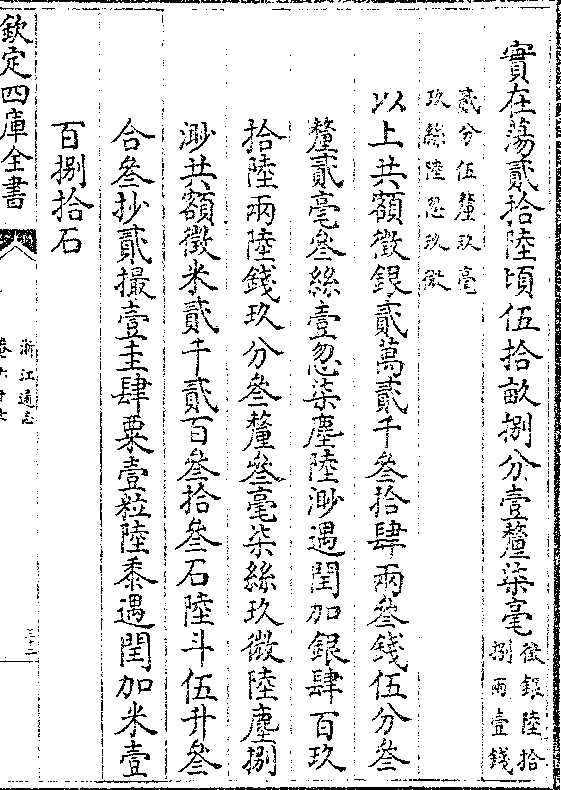 實在蕩貳拾陸頃伍拾畝捌分壹釐柒毫徵銀陸拾
捌兩壹錢
貳分伍釐玖毫
玖絲陸忽玖微
以上共額徵銀貳萬貳千叁拾肆兩叁錢伍分叁
釐貳毫叁絲壹忽柒塵陸渺遇閏加銀肆百玖
拾陸兩陸錢玖分叁釐叁毫柒絲玖微陸塵捌
渺共額徵米貳千貳百叁拾叁石陸斗伍升叁
合叁抄貳撮壹圭肆粟壹粒陸黍遇閏加米壹
百捌拾石
欽定四庫全書
浙江通志